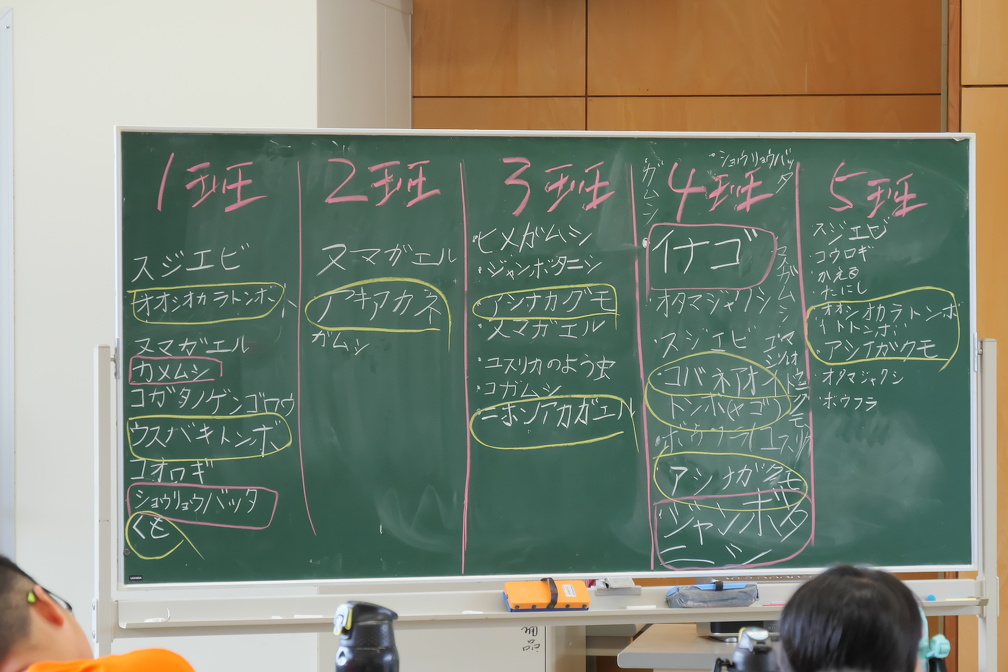 1班
スジエビ
オオシオカラトンボ
ヌマガエル
カメムシ
コガタノゲンゴロウ
ウスバキトンボ
コオロギ
ショウリョウバッタ
くも
2班
ヌマガエル
アキアカネ
ガムシ
3班
・ヒメガムシ
・ジャンボタニシ
・アシナガグモ
・ヌマガエル
・ユスリカのよう虫
・コガムシ
・ニホンアカガエル
4班
ガムシ
・ショウリョウバッタ
イナゴ
オタマジャクシ
スジエビ
コバネアオイト
トンボ(ヤゴ)
ボウフラ(ユスリカ
アシナガグモ
ジャンボタ
ニシ
5班
スジエビ
・コウロギ
・かえる
・たにし
オオシオカラトンボ
イトトンボ
アシナガクモ
・オタマジャクシ
・ボウフラ